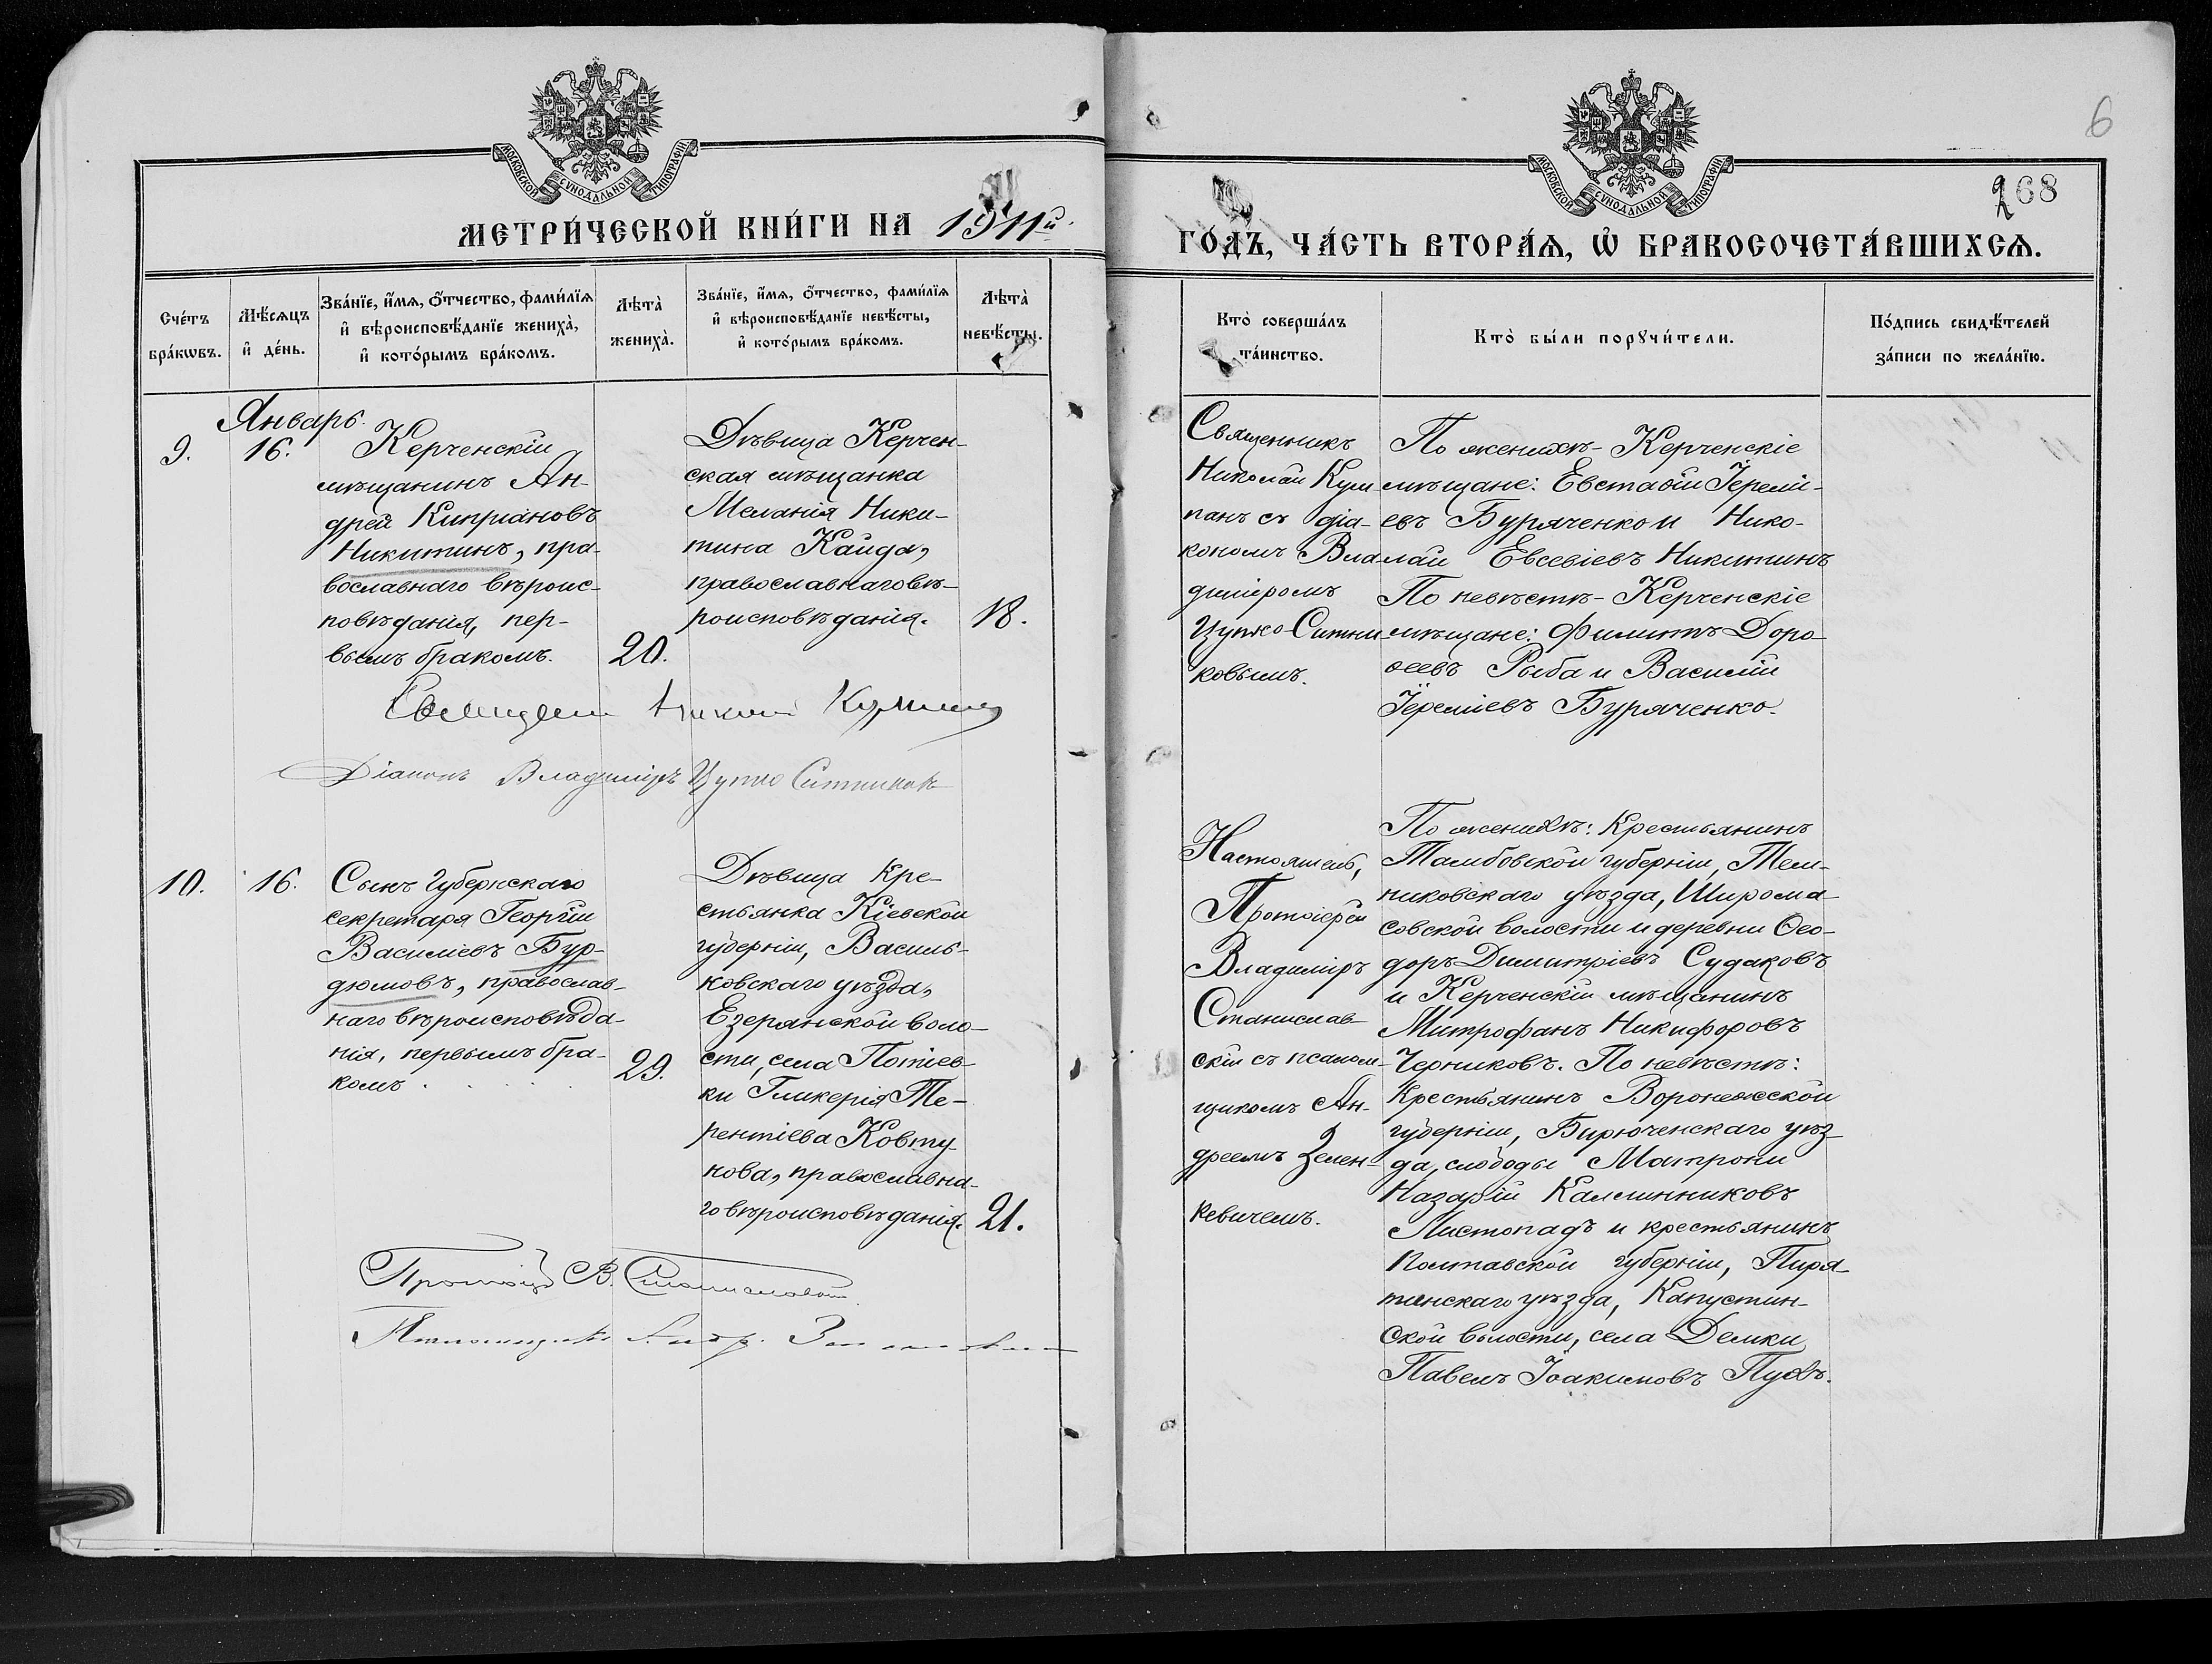 6
268
МОСКОВСКОЙ СѴНОДАЛЬНОЙ ТИПОГРАФІИ
МЕТРИ́ЧЕСКОЙ КНИ́ГИ НА 1911й
МОСКОВСКОЙ СѴНОДАЛЬНОЙ ТИПОГРАФІИ
ГО́ДЪ, ЧА́СТЬ ВТОРА́Ѧ, Ѽ БРАКОСОЧЕТА́ВШИХСѦ.
Сче́тъ
бра́кωвъ.
Мѣ́сѧцъ
и҆ де́нь.
Зва́нїе, и҆́мѧ, ѻ҆́тчество, фами́лїѧ
и҆ вѣроисповѣ́данїе жениха̀,
и҆ кото́рымъ бра́комъ.
Лѣта̀
жениха̀.
Зва́нїе, и҆́мѧ, ѻ҆́тчество, фами́лїѧ
и҆ вѣроисповѣ́данїе невѣ́сты,
и҆ кото́рымъ бра́комъ.
Лѣта̀
невѣ́сты.
Кто̀ соверша́лъ
та́инство.
Кто̀ бы́ли порꙋчи́тели.
По́дпись свидѣ́телей
за́писи по жела́нїю.
Январь.
9.
16.
Керченскій
мѣщанинъ Ан-
дрей Кипріановъ
Никитинъ, пра-
вославнаго вѣроис-
повѣданія, пер-
вымъ бракомъ.
20.
Дѣвица Керчен-
ская мѣщанка
Меланія Ники-
тина Кайда,
православнаго вѣ-
роисповѣданія.
18.
Священникъ
Николай Кум-
панъ съ діа-
кономъ Вла-
диміромъ
Цупко-Ситни-
ковымъ.
По женихѣ - Керченскіе
мѣщане: Евстаѳій Іеремі-
евъ Буряченко и Нико-
лай Евсевіевъ Никитинъ
По невѣстѣ - Керченскіе
мѣщане: Филиппъ Доро-
ѳеевъ Рыба и Василій
Іереміевъ Буряченко.
Діаконъ Владиміръ Цупко Ситников
10.
16.
Сынъ губернскаго
секретаря Георгій
Василіевъ Бур-
дюмовъ, православ-
наго вѣроисповѣда-
нія, первымъ бра-
комъ
29.
Дѣвица кре-
стьянка Кіевской
губерніи, Василь-
ковскаго уѣзда,
Езерянской воло-
сти, села Потіев-
ки Гликерія Те-
рентіева Ковту-
нова, православна-
го вѣроисповѣданія.
21.
Настоятель,
Протоіерей
Владиміръ
Станислав-
скій съ псалом-
щикомъ Ан-
дреемъ Зелен-
кевичемъ.
По женихѣ: Крестьянинъ
Тамбовской губерніи, Тем-
никовскаго уѣзда, Широма-
совской волости и деревни Ѳео-
доръ Димитріевъ Судаковъ
и Керченскій мѣщанинъ
Митрофанъ Никифоровъ
Черниковъ. По невѣстѣ:
Крестьянинъ Воронежской
губерніи, Бирюченскаго уѣз-
да, слободы Матрони
Назарій Калинниковъ
Листопадъ и крестьянинъ
Полтавской губерніи, Пиря-
тинскаго уѣзда, Капустин-
ской волости, села Демки
Павелъ Іоакимовъ Пухъ.